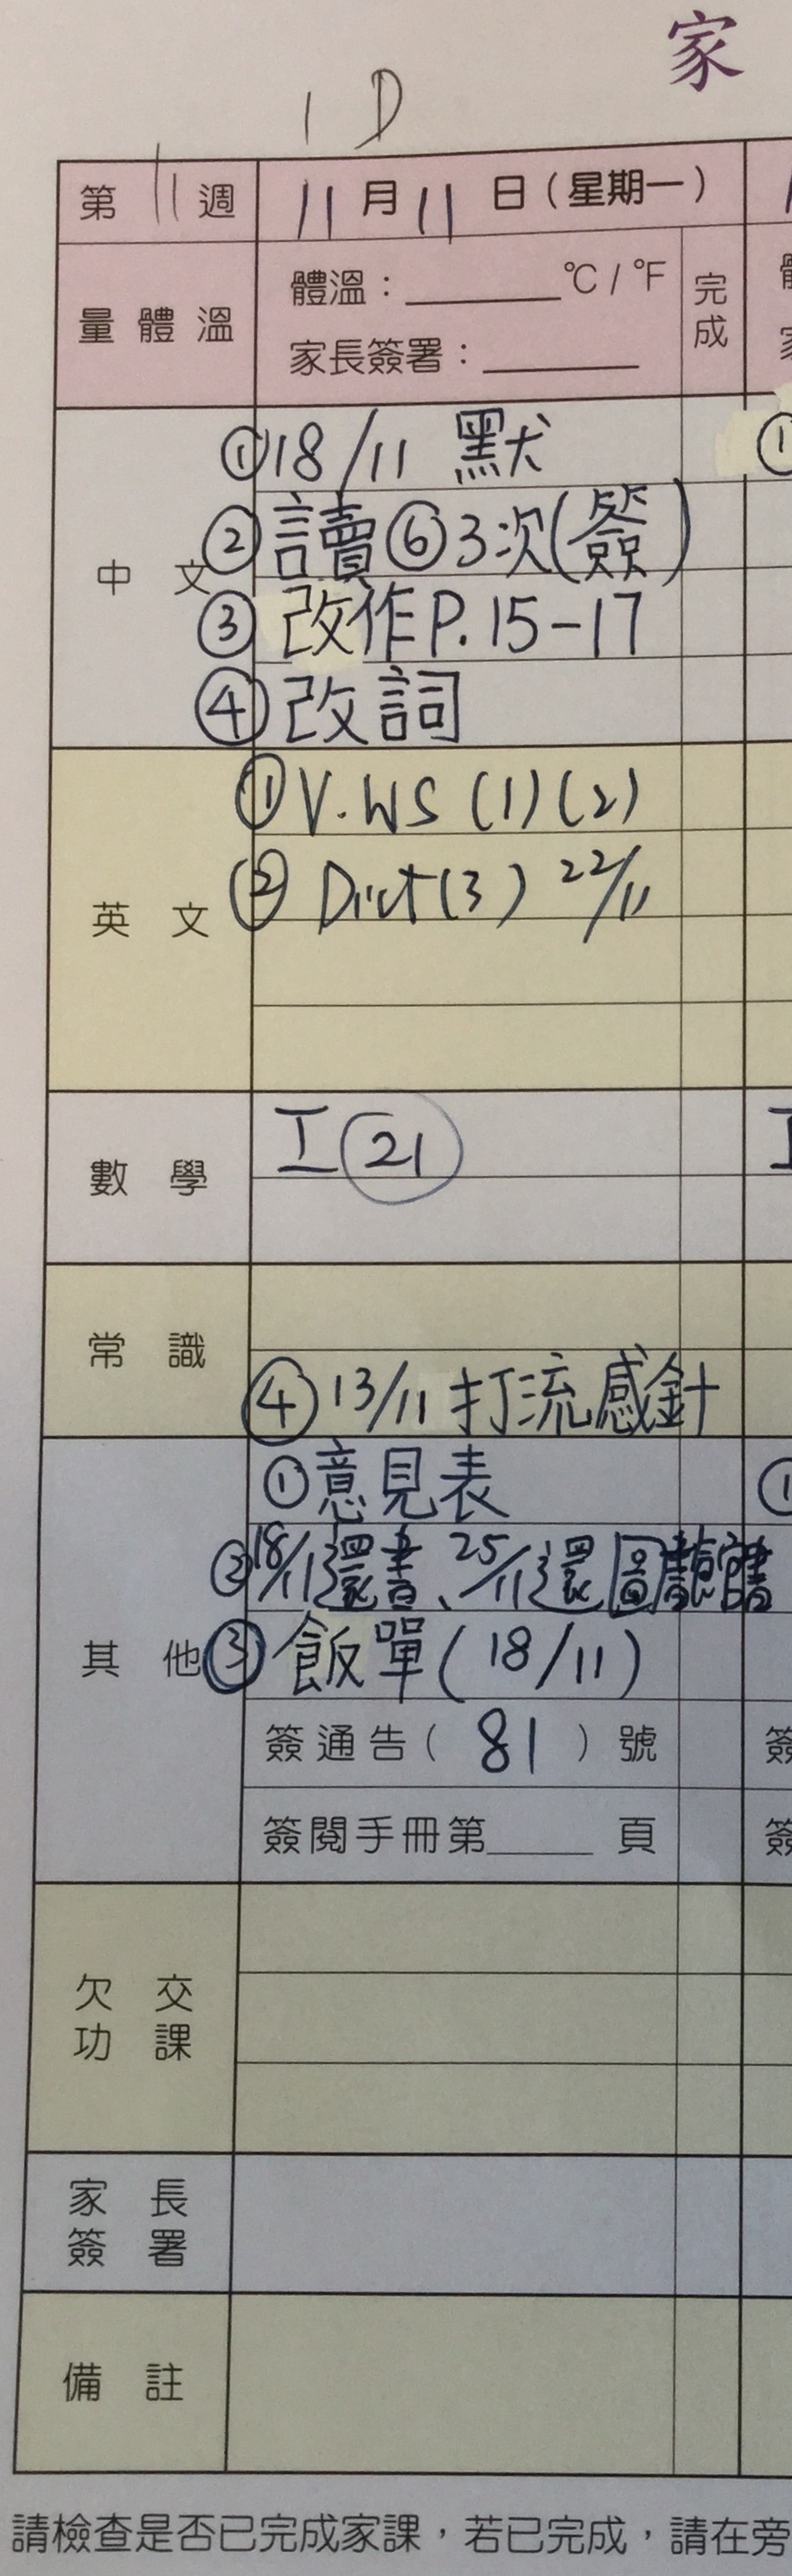 家
1D
第 11 週 11 月 11 日 ( 星期一 )
量體溫 體溫：______°C / °F 完成
家長簽署：______
中文
①18/11 默
②讀⑥3次(簽)
③改作P.15-17
④改詞
英文
①V.WS (1)(2)
②Dict(3) 22/11
數學
I㉑
常識
④13/11 打流感針
其他
①意見表
②18/11還書、25/11還圖書館書
③飯單(18/11)
簽通告( 81 )號
簽閱手冊第______頁
欠交功課
家長簽署
備註
請檢查是否已完成家課，若已完成，請在旁